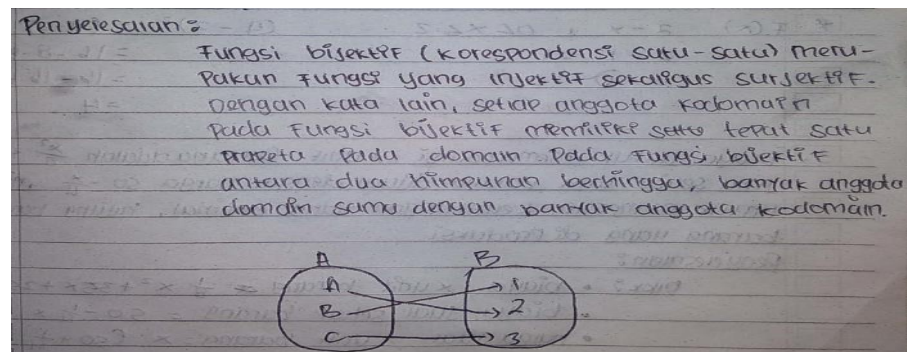 Penyelesaian :
Fungsi bijektif (korespondensi satu-satu) meru-
pakan fungsi yang injektif sekaligus surjektif.
Dengan kata lain, setiap anggota kodomain
pada fungsi bijektif memiliki tepat satu
prapeta pada domain. Pada fungsi bijektif
antara dua himpunan berhingga, banyak anggota
domain sama dengan banyak anggota kodomain.
A B
A 1
B 2
C 3